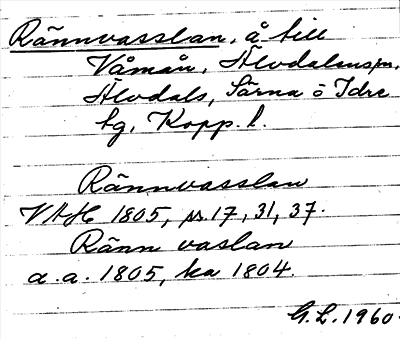 Rännvasslan, å till
Våmån, Älvdalens sn,
Älvdals, Särna o Idre
tg, Kopp. l.
Rännvasslan
VAH 1805, nr. 17, 31, 37.
Ränn vaslan
a. a. 1805, ka 1804.
G. L. 1960.